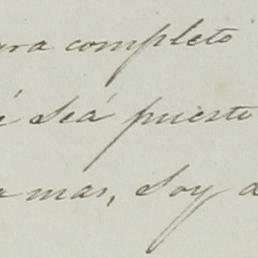 ra completo
é séa puesto
a mas, soy d